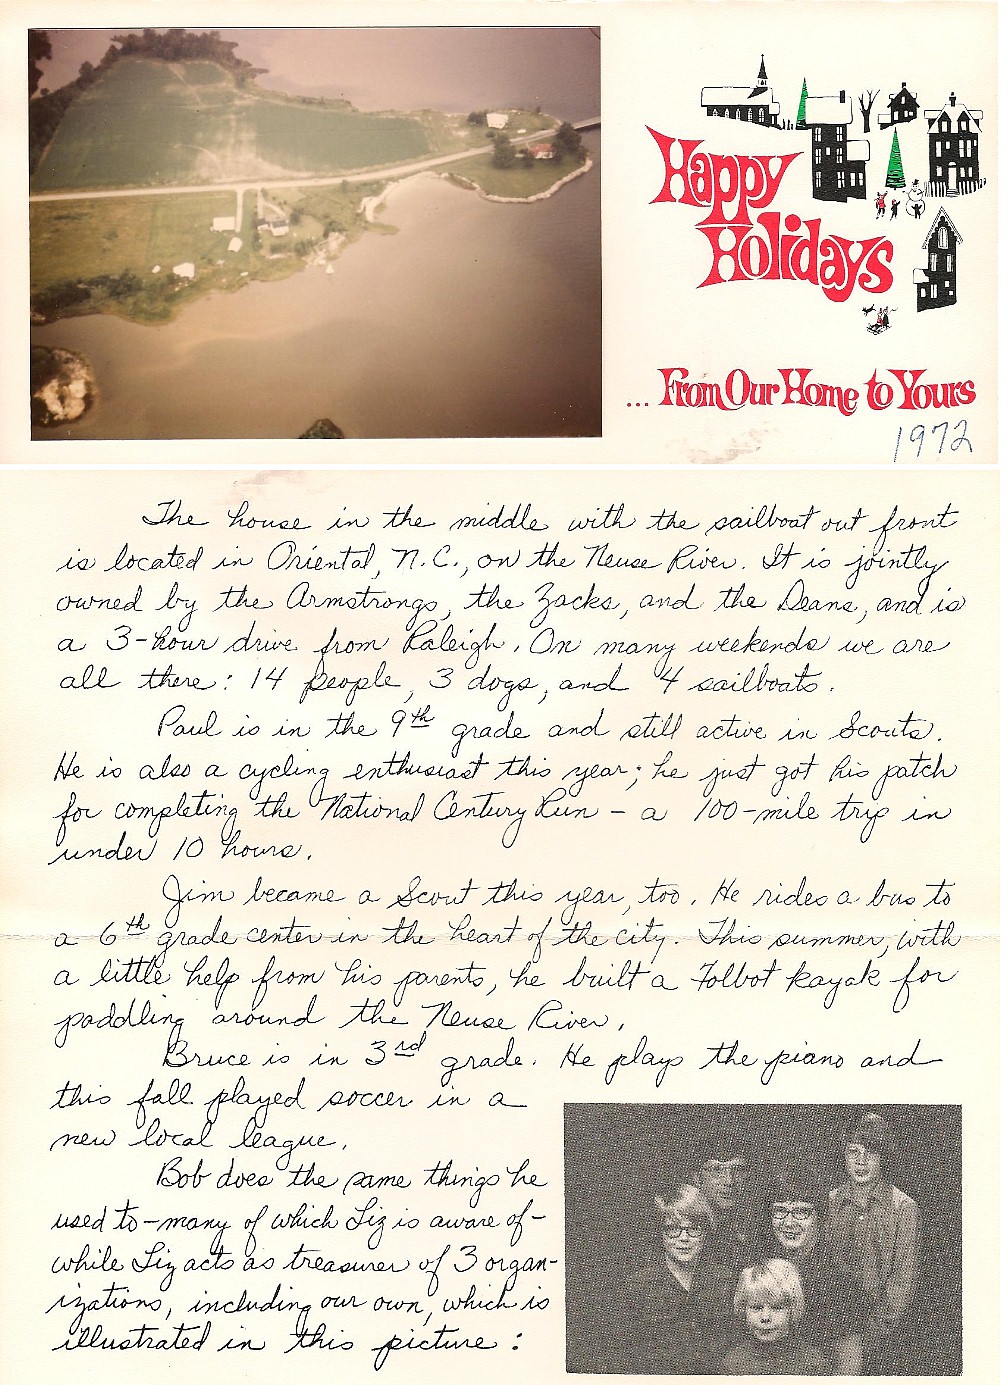 Happy
Holidays
... From Our Home to Yours
1972
The house in the middle with the sailboat out front
is located in Oriental, N.C., on the Neuse River. It is jointly
owned by the Armstrongs, the Zacks, and the Deans, and is
a 3-hour drive from Raleigh. On many weekends we are
all there: 14 people, 3 dogs, and 4 sailboats.
Paul is in the 9th grade and still active in Scouts.
He is also a cycling enthusiast this year; he just got his patch
for completing the National Century Run - a 100-mile trip in
under 10 hours.
Jim became a Scout this year, too. He rides a bus to
a 6th grade center in the heart of the city. This summer, with
a little help from his parents, he built a Folbot kayak for
paddling around the Neuse River.
Bruce is in 3rd grade. He plays the piano and
this fall played soccer in a
new local league.
Bob does the same things he
used to - many of which Liz is aware of -
while Liz acts as treasurer of 3 organ-
izations, including our own, which is
illustrated in this picture: